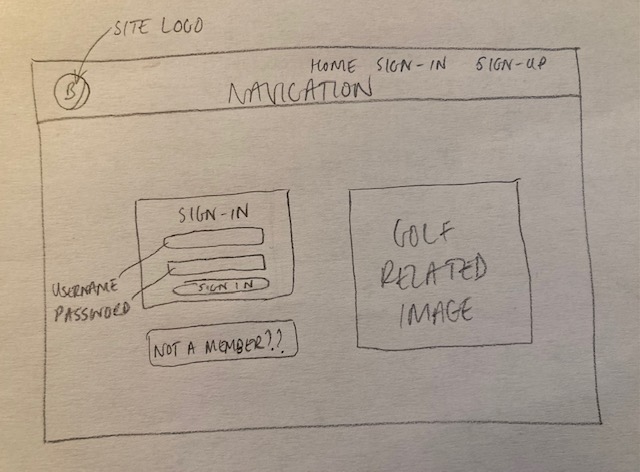 SITE LOGO
B
HOME SIGN-IN SIGN-UP
NAVIGATION
SIGN-IN
USERNAME
PASSWORD
SIGN IN
NOT A MEMBER??
GOLF
RELATED
IMAGE